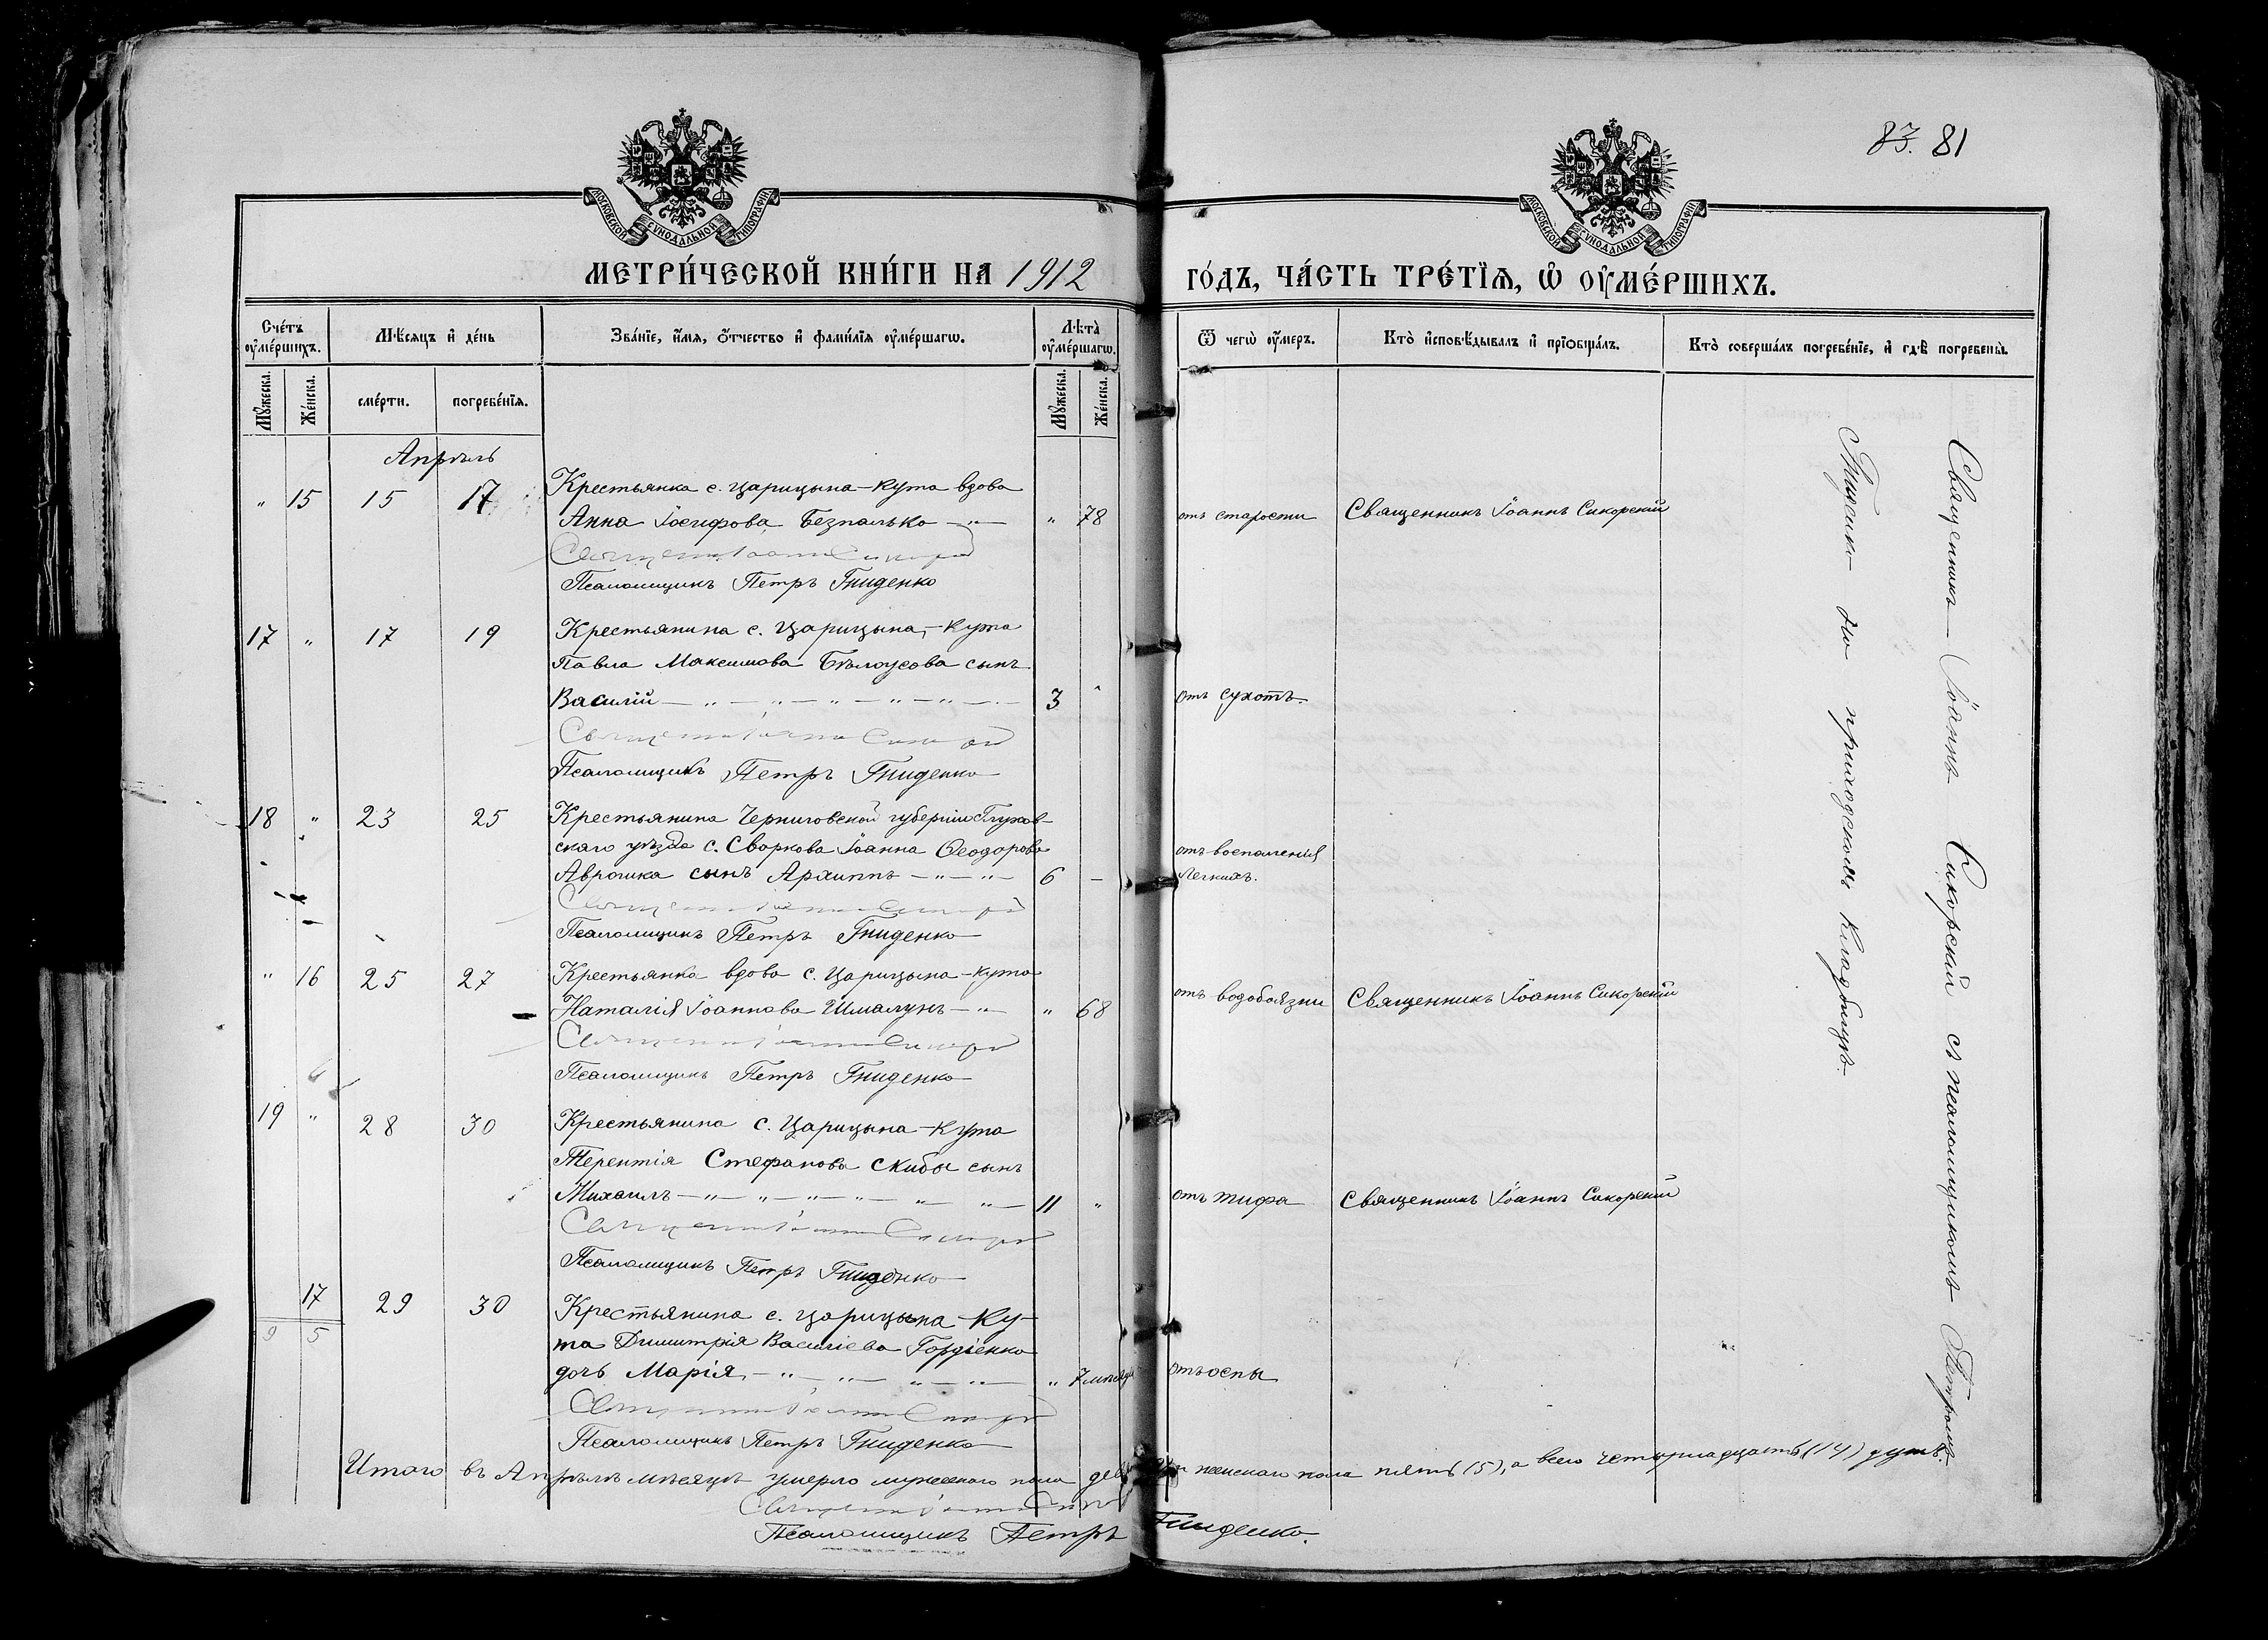 83. 81
МОСКОВСКОЙ СУНОДАЛЬНОЙ ТИПОГРАФІИ
МОСКОВСКОЙ СУНОДАЛЬНОЙ ТИПОГРАФІИ
МЕТРИ́ЧЕСКОЙ КНИ́ГИ НА 1912 ГО́ДЪ, ЧА́СТЬ ТРЕ́ТІѦ, Ѡ ОУ҆МЕ́РШИХЪ.
Сче́тъ оу҆ме́ршихъ. Мѣ́сяцъ и҆ де́нь Зва́нїе, и҆́мя, ѻ҆́тчество и҆ фами́лїя оу҆ме́ршагѡ. Лѣ̀та оу҆ме́ршагѡ. Ѿ чегѡ̀ оу҆́меръ. Кто̀ и҆сповѣ́дывалъ и҆ прїѻбща́лъ. Кто̀ соверша́лъ погребе́нїе, и҆ гдѣ̀ погребены̀.
Мꙋ́жеска. Же́нска. сме́рти. погребе́нїя. Мꙋ́жеска. Же́нска.
Апрѣль
„ 15 15 17 Крестьянка с. Царицына-Кута вдова
Анна Іосифова Безпалько „ 78 отъ старости Священникъ Іоаннъ Сикорскій
Псаломщикъ Петръ Гниденко
17 „ 17 19 Крестьянина с. Царицына-Кута
Павла Максимова Бѣлоусова сынъ
Василій 3 „ отъ сухотъ.
Псаломщикъ Петръ Гниденко
18 „ 23 25 Крестьянина Черниговской губерніи Глухов-
скаго уѣзда с. Сваркова Іоанна Ѳеодорова
Аврошка сынъ Архиппъ 6 – отъ воспаленія легкихъ.
Псаломщикъ Петръ Гниденко
„ 16 25 27 Крестьянка вдова с. Царицына-Кута
Наталія Іоаннова Шмалунъ „ 68 отъ водобоязни Священникъ Іоаннъ Сикорскій
Псаломщикъ Петръ Гниденко
19 „ 28 30 Крестьянина с. Царицына-Кута
Терентія Стефанова Скибы сынъ
Михаилъ 11 „ отъ тифа Священникъ Іоаннъ Сикорскій
Псаломщикъ Петръ Гниденко
17 29 30 Крестьянина с. Царицына-Ку-
9 5
та Димитрія Василіева Гордіенко
дочь Марія „ 7 мѣсяц отъ оспы
Псаломщикъ Петръ Гниденко
Итого въ Апрѣлѣ мѣсяцѣ умерло мужескаго пола женскаго пола пять (5), а всего четырнадцать (14) душъ.
Псаломщикъ Петръ Гниденко.
Священникъ Іоаннъ Сикорскій съ псаломщикомъ Петромъ
Гниденко на приходскомъ кладбищѣ.